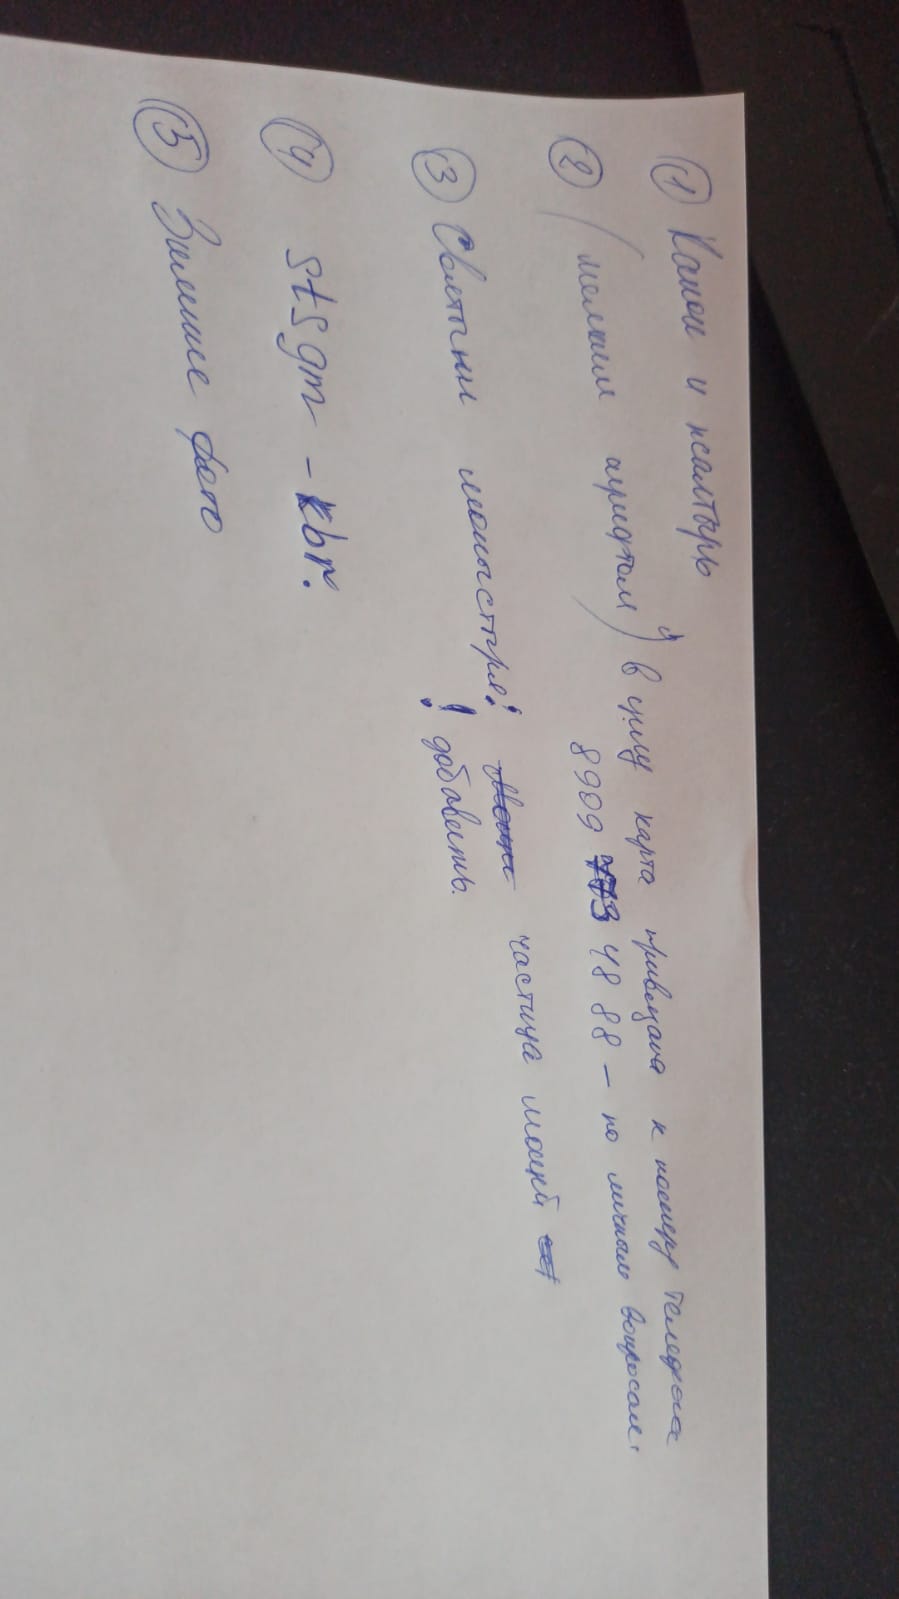 ① Канон и псалтырь
② (мелким шрифтом) в цилу карта привязана к номеру телефона
8909 773 48 88 – по личным вопросам.
③ Святыни моныстыря: частица мощей
! добавить.
④ stsgm - kbr.
⑤ Зимние фото